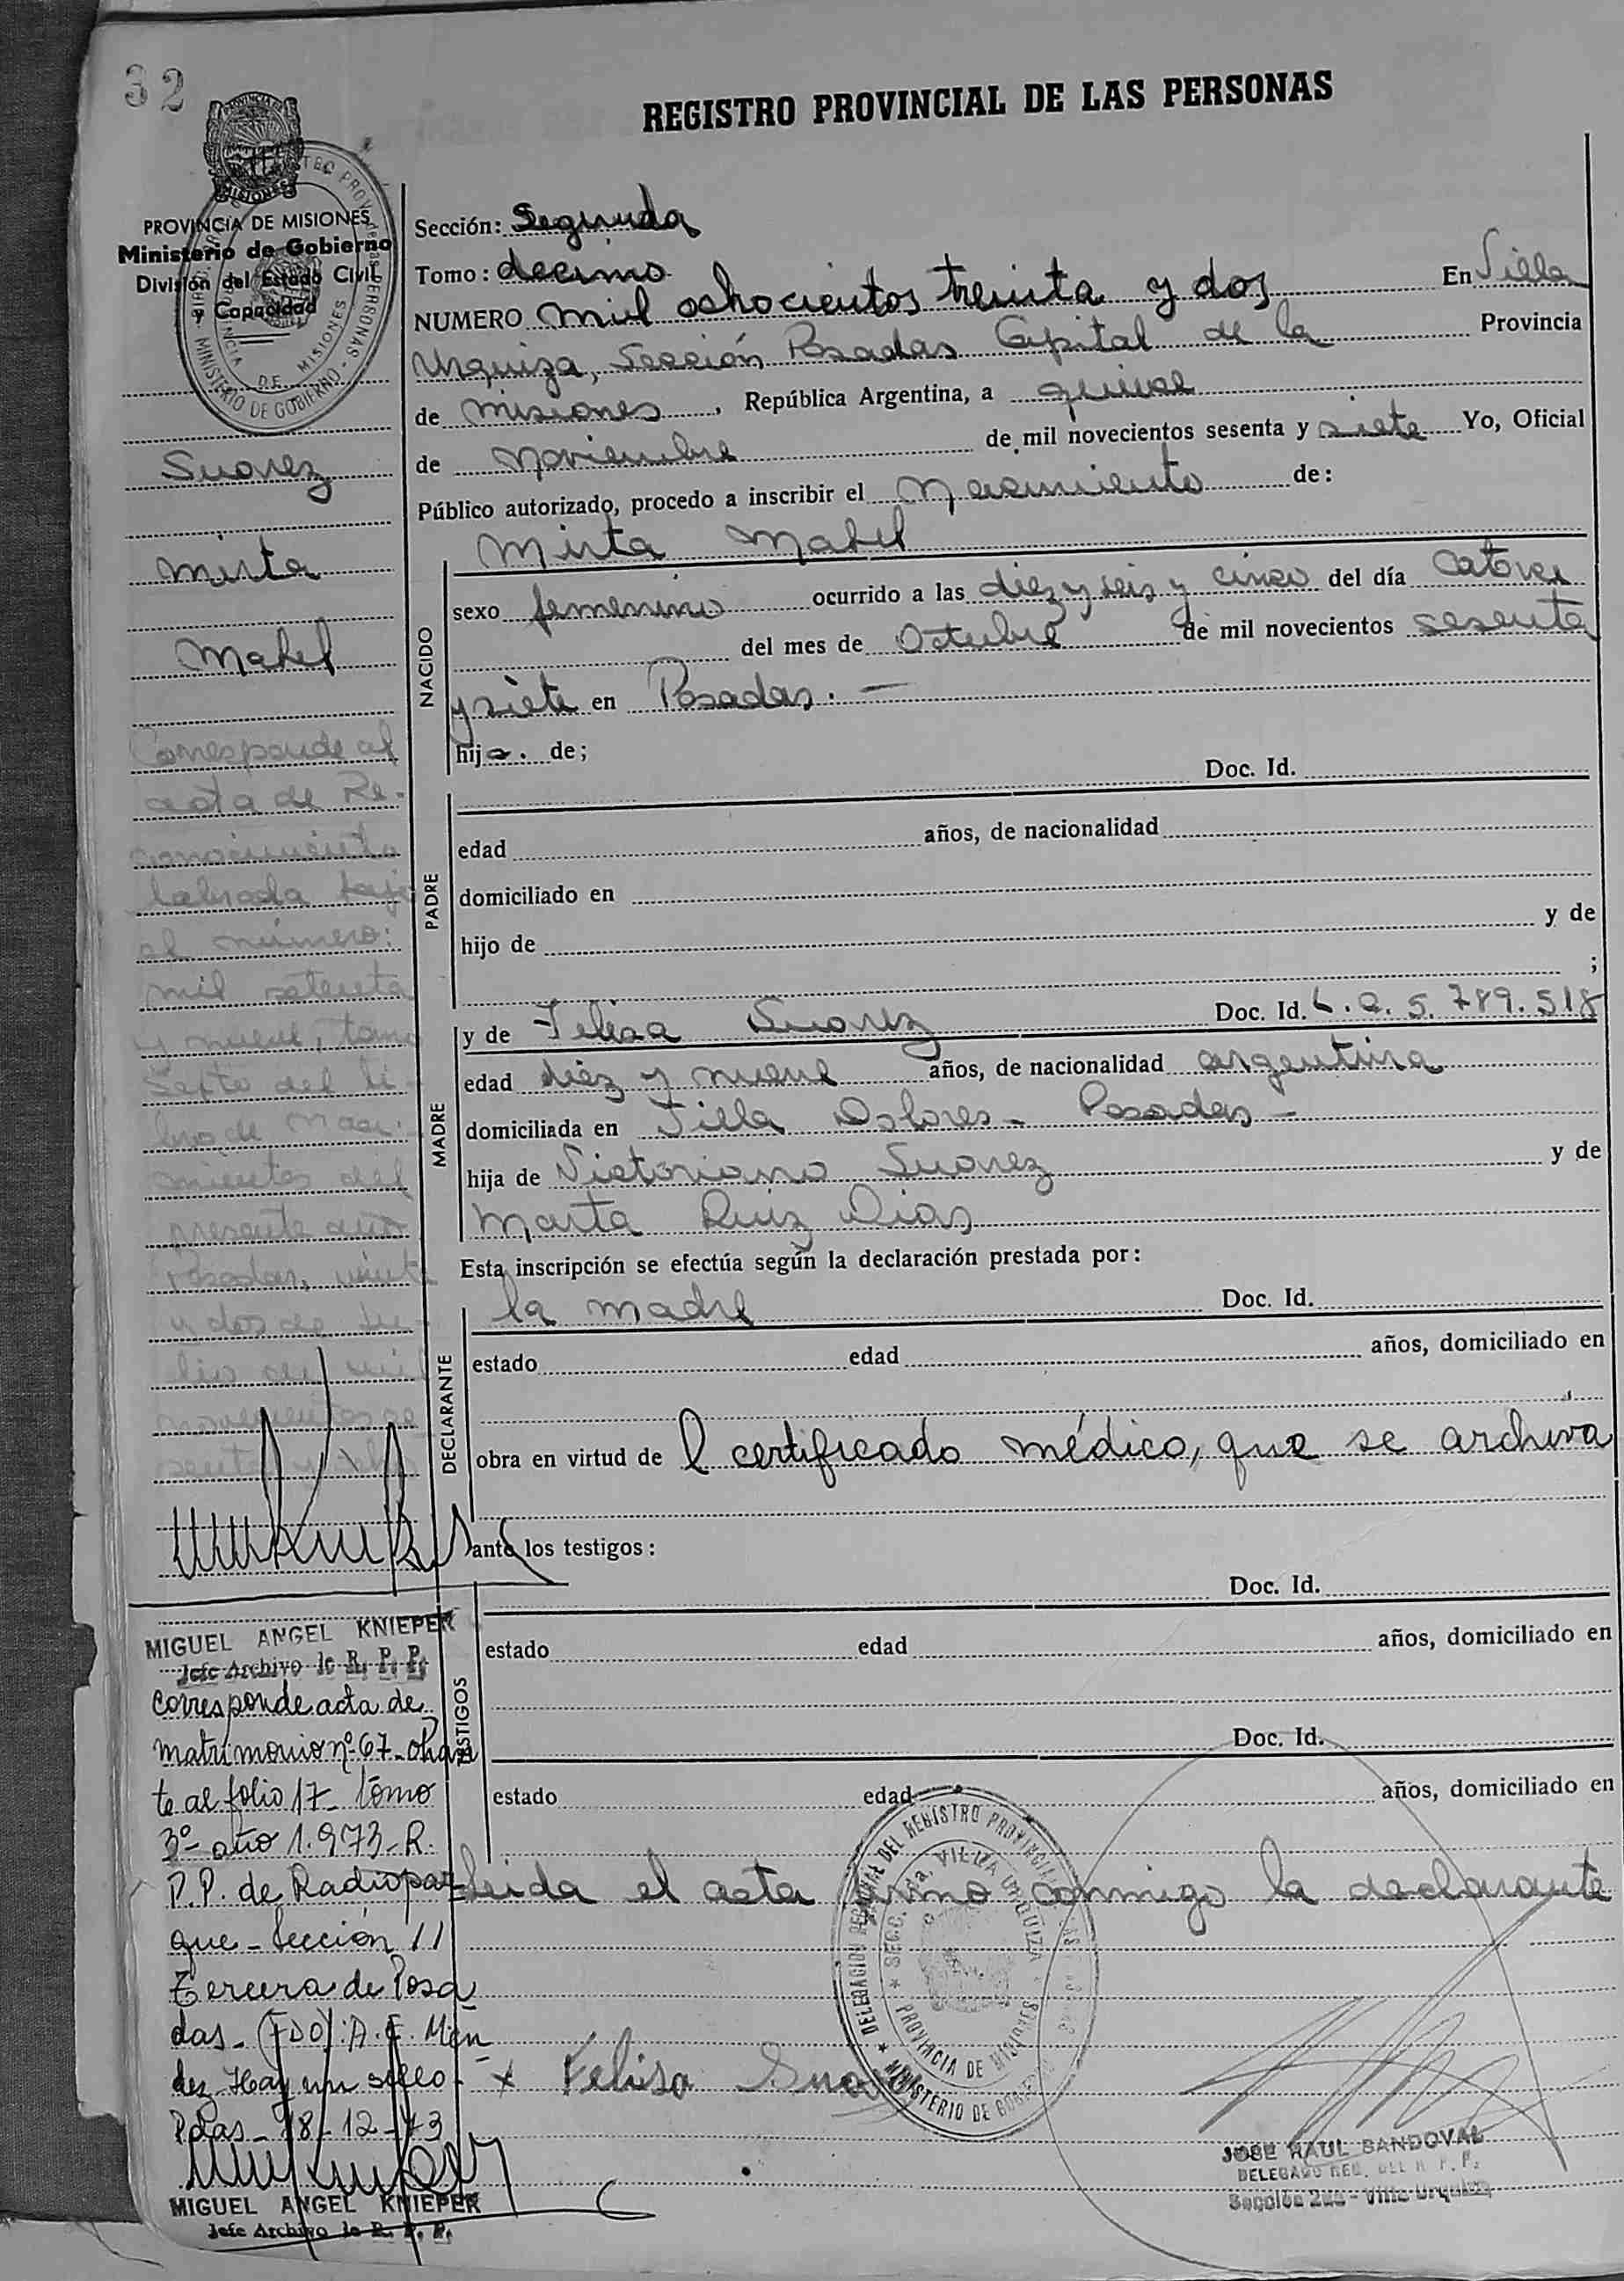 32
REGISTRO PROVINCIAL DE LAS PERSONAS
MISIONES
PROVINCIA DE MISIONES
Ministerio de Gobierno
División del Estado Civil
y Capacidad
Sección: Segunda
Tomo: decimo
NUMERO mil ochocientos treinta y dos En Villa
Urquiza, Sección Posadas Capital de la Provincia
de misiones, República Argentina, a quince
de noviembre de mil novecientos sesenta y siete Yo, Oficial
Público autorizado, procedo a inscribir el nacimiento de:
Mirta Mabel
NACIDO
sexo femenino ocurrido a las diez y seis y cinco del día Catorce
del mes de Octubre de mil novecientos sesenta
y siete en Posadas. —
hija. de;
PADRE
Doc. Id.
edad años, de nacionalidad
domiciliado en
hijo de y de
;
MADRE
y de Felisa Suarez Doc. Id. L.C. 5.789.518
edad diez y nueve años, de nacionalidad argentina
domiciliada en Villa Dolores - Posadas -
hija de Victoriano Suarez y de
Marta Ruiz Dias
Esta inscripción se efectúa según la declaración prestada por:
DECLARANTE
la madre Doc. Id.
estado edad años, domiciliado en
obra en virtud de l certificado médico, que se archiva
ante los testigos:
TESTIGOS
Doc. Id.
estado edad años, domiciliado en
Doc. Id.
estado edad años, domiciliado en
Leida el acta firma conmigo la declarante
x Felisa Suarez
DELEGACION DEL REGISTRO PROVINCIAL
SECC. 2da. VILLA URQUIZA
PROVINCIA DE MISIONES
MINISTERIO DE GOBIERNO
JOSE RAUL SANDOVAL
DELEGADO REG. DEL R. P. P.
Sección 2da - Villa Urquiza
Suarez
Mirta
Mabel
Corresponde al
acta de Re-
conocimiento
labrada bajo
el número:
mil setenta
y nueve, tomo
Septo del li-
bro de Naci-
mientos del
presente año
Posadas, veinte
y dos de Ju-
lio de mil
novecientos se
senta y
MIGUEL ANGEL KNIEPER
Jefe Archivo de R. P. P.
Corresponde acta de
matrimonio nº 67- obran
te al folio 17- tomo
3º- año 1.973- R.
P.P. de Radiopar
que- Sección 11
Tercera de Posa
das- (FDO): A. E. Mén
dez- Hay un sello-
Pdas- 18-12-73
MIGUEL ANGEL KNIEPER
Jefe Archivo de R. P. P.